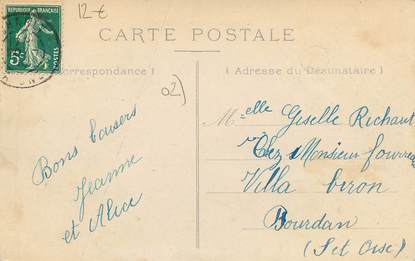 12 €
RÉPUBLIQUE FRANÇAISE
5c
POSTES
CARTE POSTALE
Correspondance)
(Adresse du Destinataire)
02)
Bons baisers
Jeanne
et Alice
Melle Giselle Richaut
Chez Monsieur
Villa biron
Dourdan
(S et Oise)